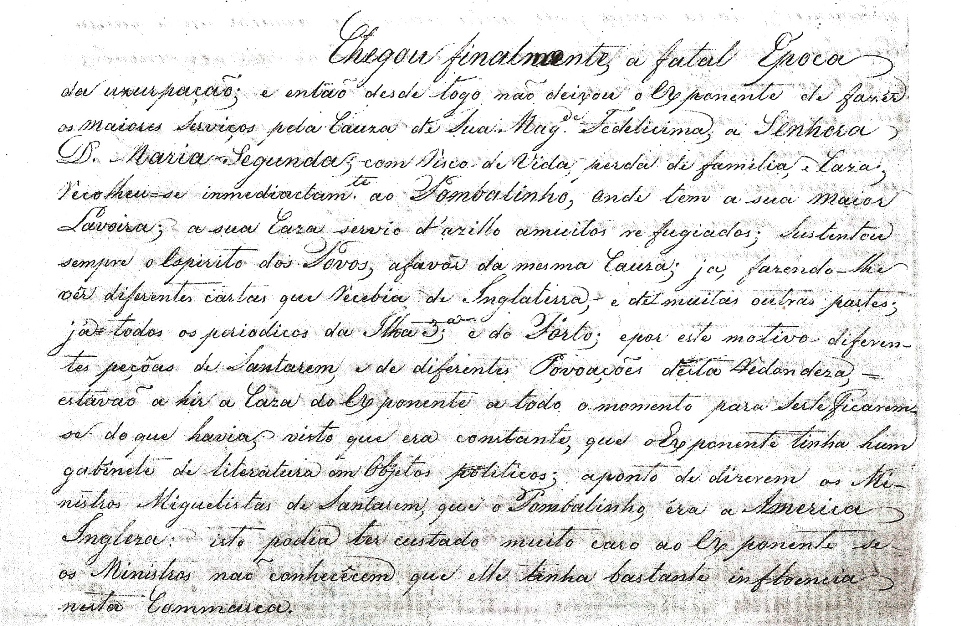 Chegou finalmente, a fatal Epoca
da uxurpação; e então desde logo não deixou o Exponente de fazer
os maiores Serviços pela Cauza de Sua Mag.de Fedelicima, a Senhora
D. Maria Segunda; com risco de Vida, perda de familia, e Caza;
recolheu-se inmediactam.te ao Pombalinho, onde tem a sua maior
Lavoira; a sua Caza servio d'azillo amuitos refugiados; Sustentou
sempre o Espirito dos Povos, afavôr da mesma Cauza; ja, fazendo-lhe
vêr diferentes cartas que recebia de Inglaterra, e de muitas outras partes;
já todos os periodicos da Ilha 3.ª; e do Porto; epor este motivo diferen-
tes peções de Santarem, e de diferentes Povoações desta Redondeza,
estavão a hir a Caza do Exponente a todo o momento para Serteficarem
se do que havia, visto que era constante, que o Exponente tinha hum
gabinete de literatura em Objetos politicos; aponto de dizerem os Mi-
nistros Miguelistas de Santarem, que o Pombalinho, éra a America
Ingleza: isto podia ter custado muito caro ao Exponente se
os Ministros não conhecêcem que elle tinha bastante influencia
nesta Commarca.